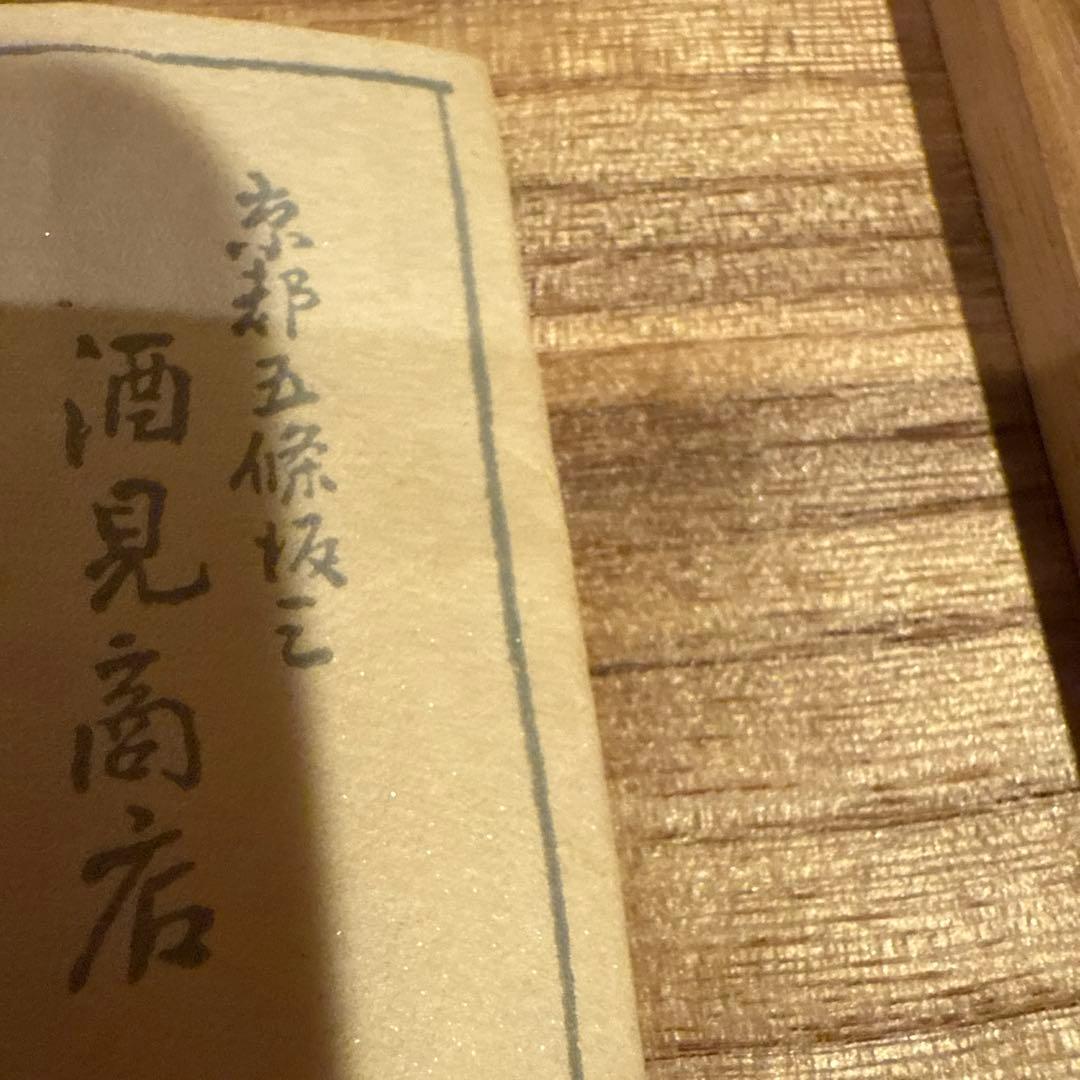 京都五條坂三
酒見商店